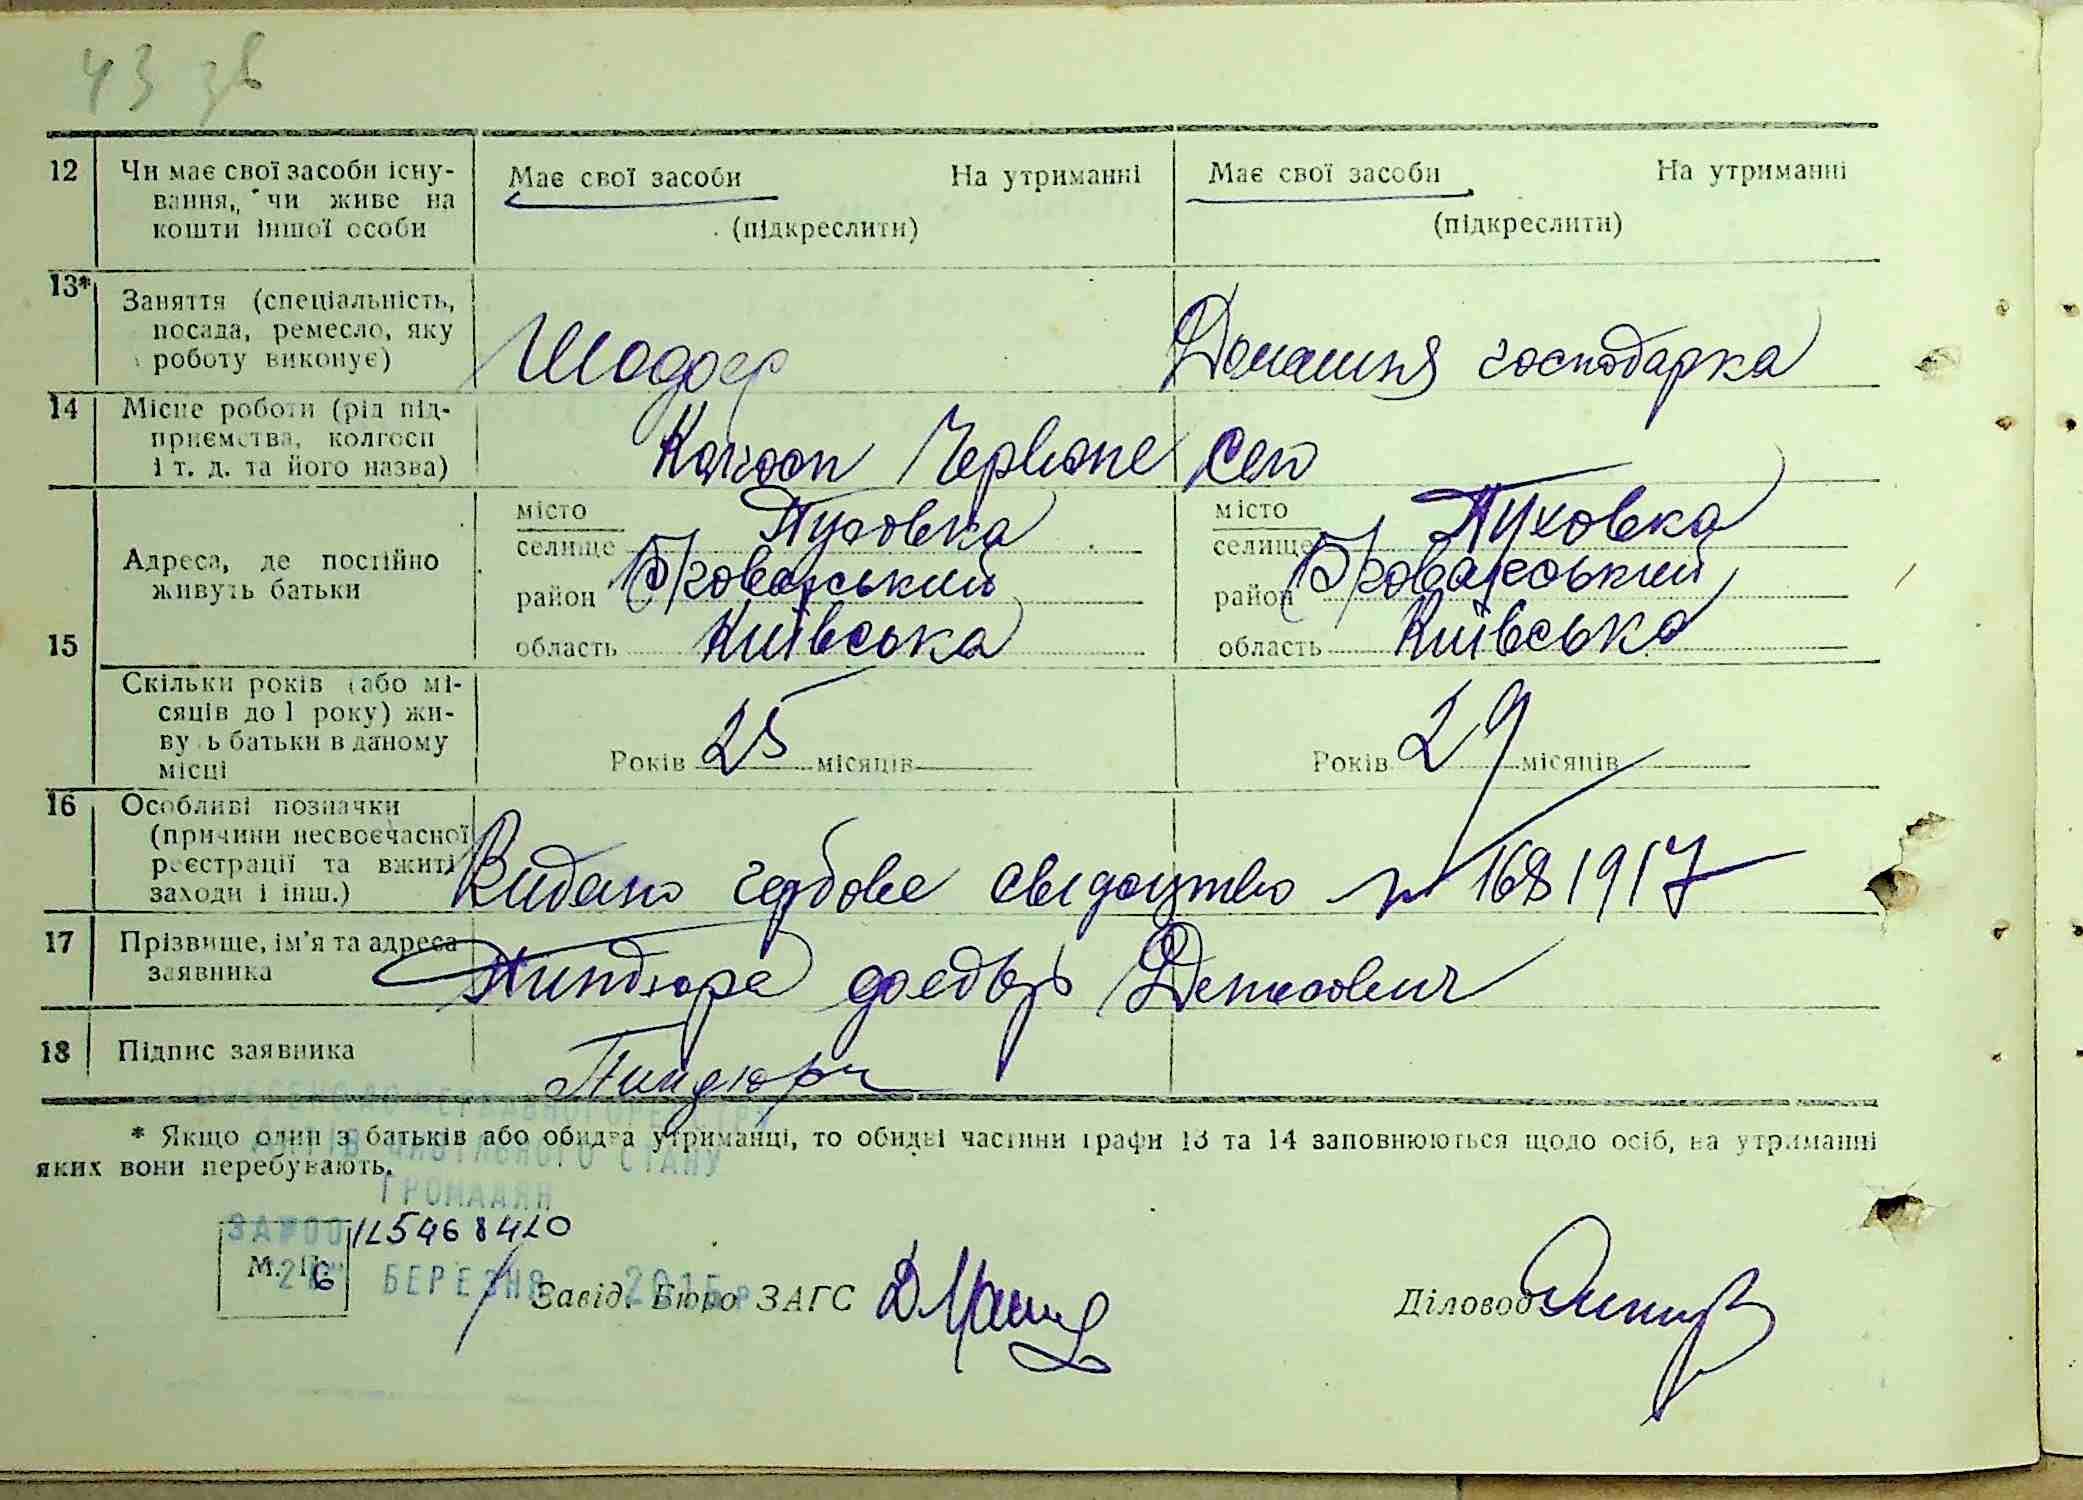 43 зв
12 Чи має свої засоби існу- Має свої засоби На утриманні Має свої засоби На утриманні
вання, чи живе на
кошти іншої особи (підкреслити) (підкреслити)
13* Заняття (спеціальність,
посада, ремесло, яку
роботу виконує) Шофер Домашня господарка
14 Місце роботи (рід під-
приємства, колгосп
і т. д. та його назва) Колгосп Червоне село
15 Адреса, де постійно
живуть батьки
місто
селище Пуховка
район Броварський
область Київська
місто
селище Пуховка
район Броварський
область Київська
Скільки років (або мі-
сяців до 1 року) жи-
вуть батьки в даному
місці
Років 25 місяців Років 29 місяців
16 Особливі позначки
(причини несвоєчасної
реєстрації та вжиті
заходи і інш.) Видано гербове свідоцтво № 1681917
17 Прізвище, ім'я та адреса
заявника Пиндюра Федір Денисович
18 Підпис заявника Пиндюра
* Якщо один з батьків або обидва утриманці, то обидві частини графи 13 та 14 заповнюються щодо осіб, на утриманні
яких вони перебувають.
ВНЕСЕНО ДО ДЕРЖАВНОГО РЕЄСТРУ
АКТІВ ЦИВІЛЬНОГО СТАНУ
ГРОМАДЯН
ЗА №00125468420
М. П.
26 БЕРЕЗНЯ 2015 р
Завід. Бюро ЗАГС
Діловод